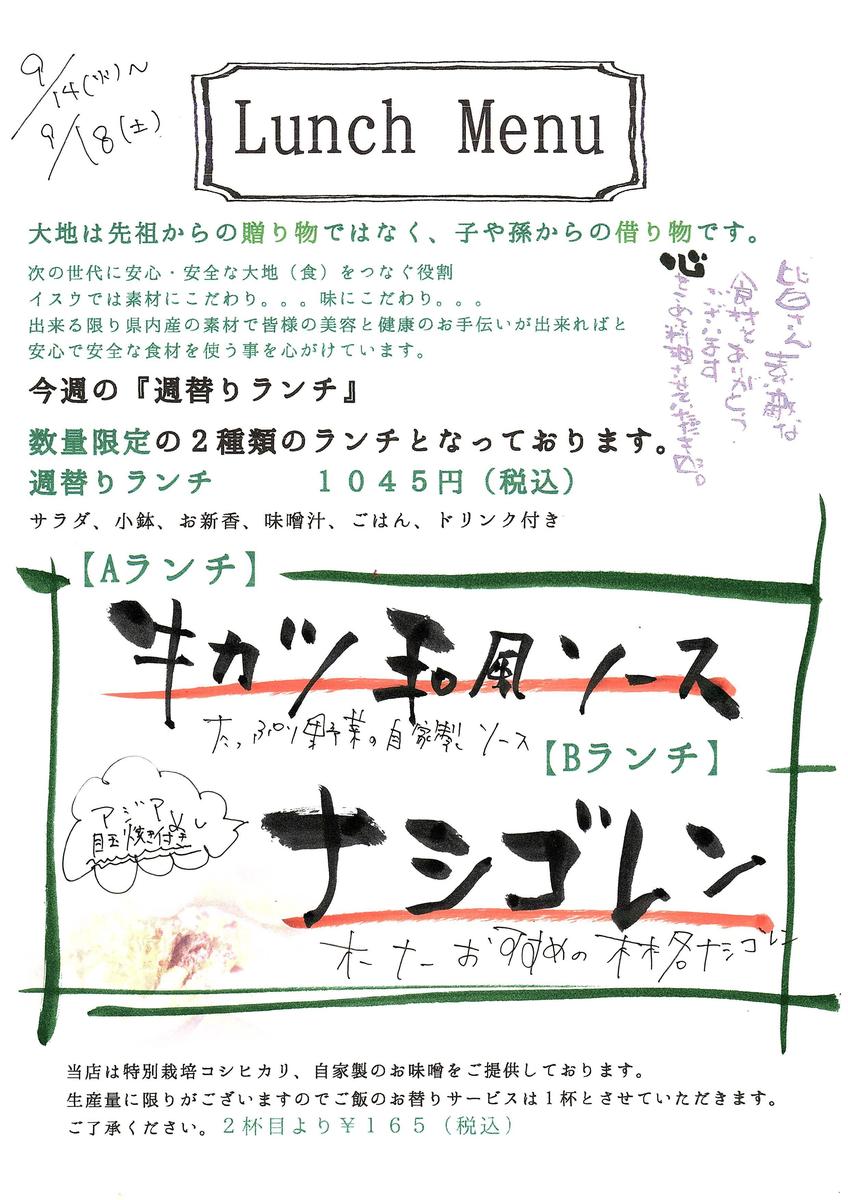 9/14(火)～
9/18(土)
Lunch Menu
大地は先祖からの贈り物ではなく、子や孫からの借り物です。
次の世代に安心・安全な大地（食）をつなぐ役割
イスウでは素材にこだわり。。。味にこだわり。。。
出来る限り県内産の素材で皆様の美容と健康のお手伝いが出来ればと
安心で安全な食材を使う事を心がけています。
皆さん素敵な
食材をありがとう
ございます
心
今週の『週替りランチ』
数量限定の２種類のランチとなっております。
週替りランチ １０４５円（税込）
サラダ、小鉢、お新香、味噌汁、ごはん、ドリンク付き
【Aランチ】
牛カツ和風ソース
たっぷり野菜の自家製ソース
【Bランチ】
アジアン
目玉焼き付き
ナシゴレン
オーナーおすすめの本格ナシゴレン
当店は特別栽培コシヒカリ、自家製のお味噌をご提供しております。
生産量に限りがございますのでご飯のお替りサービスは１杯とさせていただきます。
ご了承ください。２杯目より￥１６５（税込）